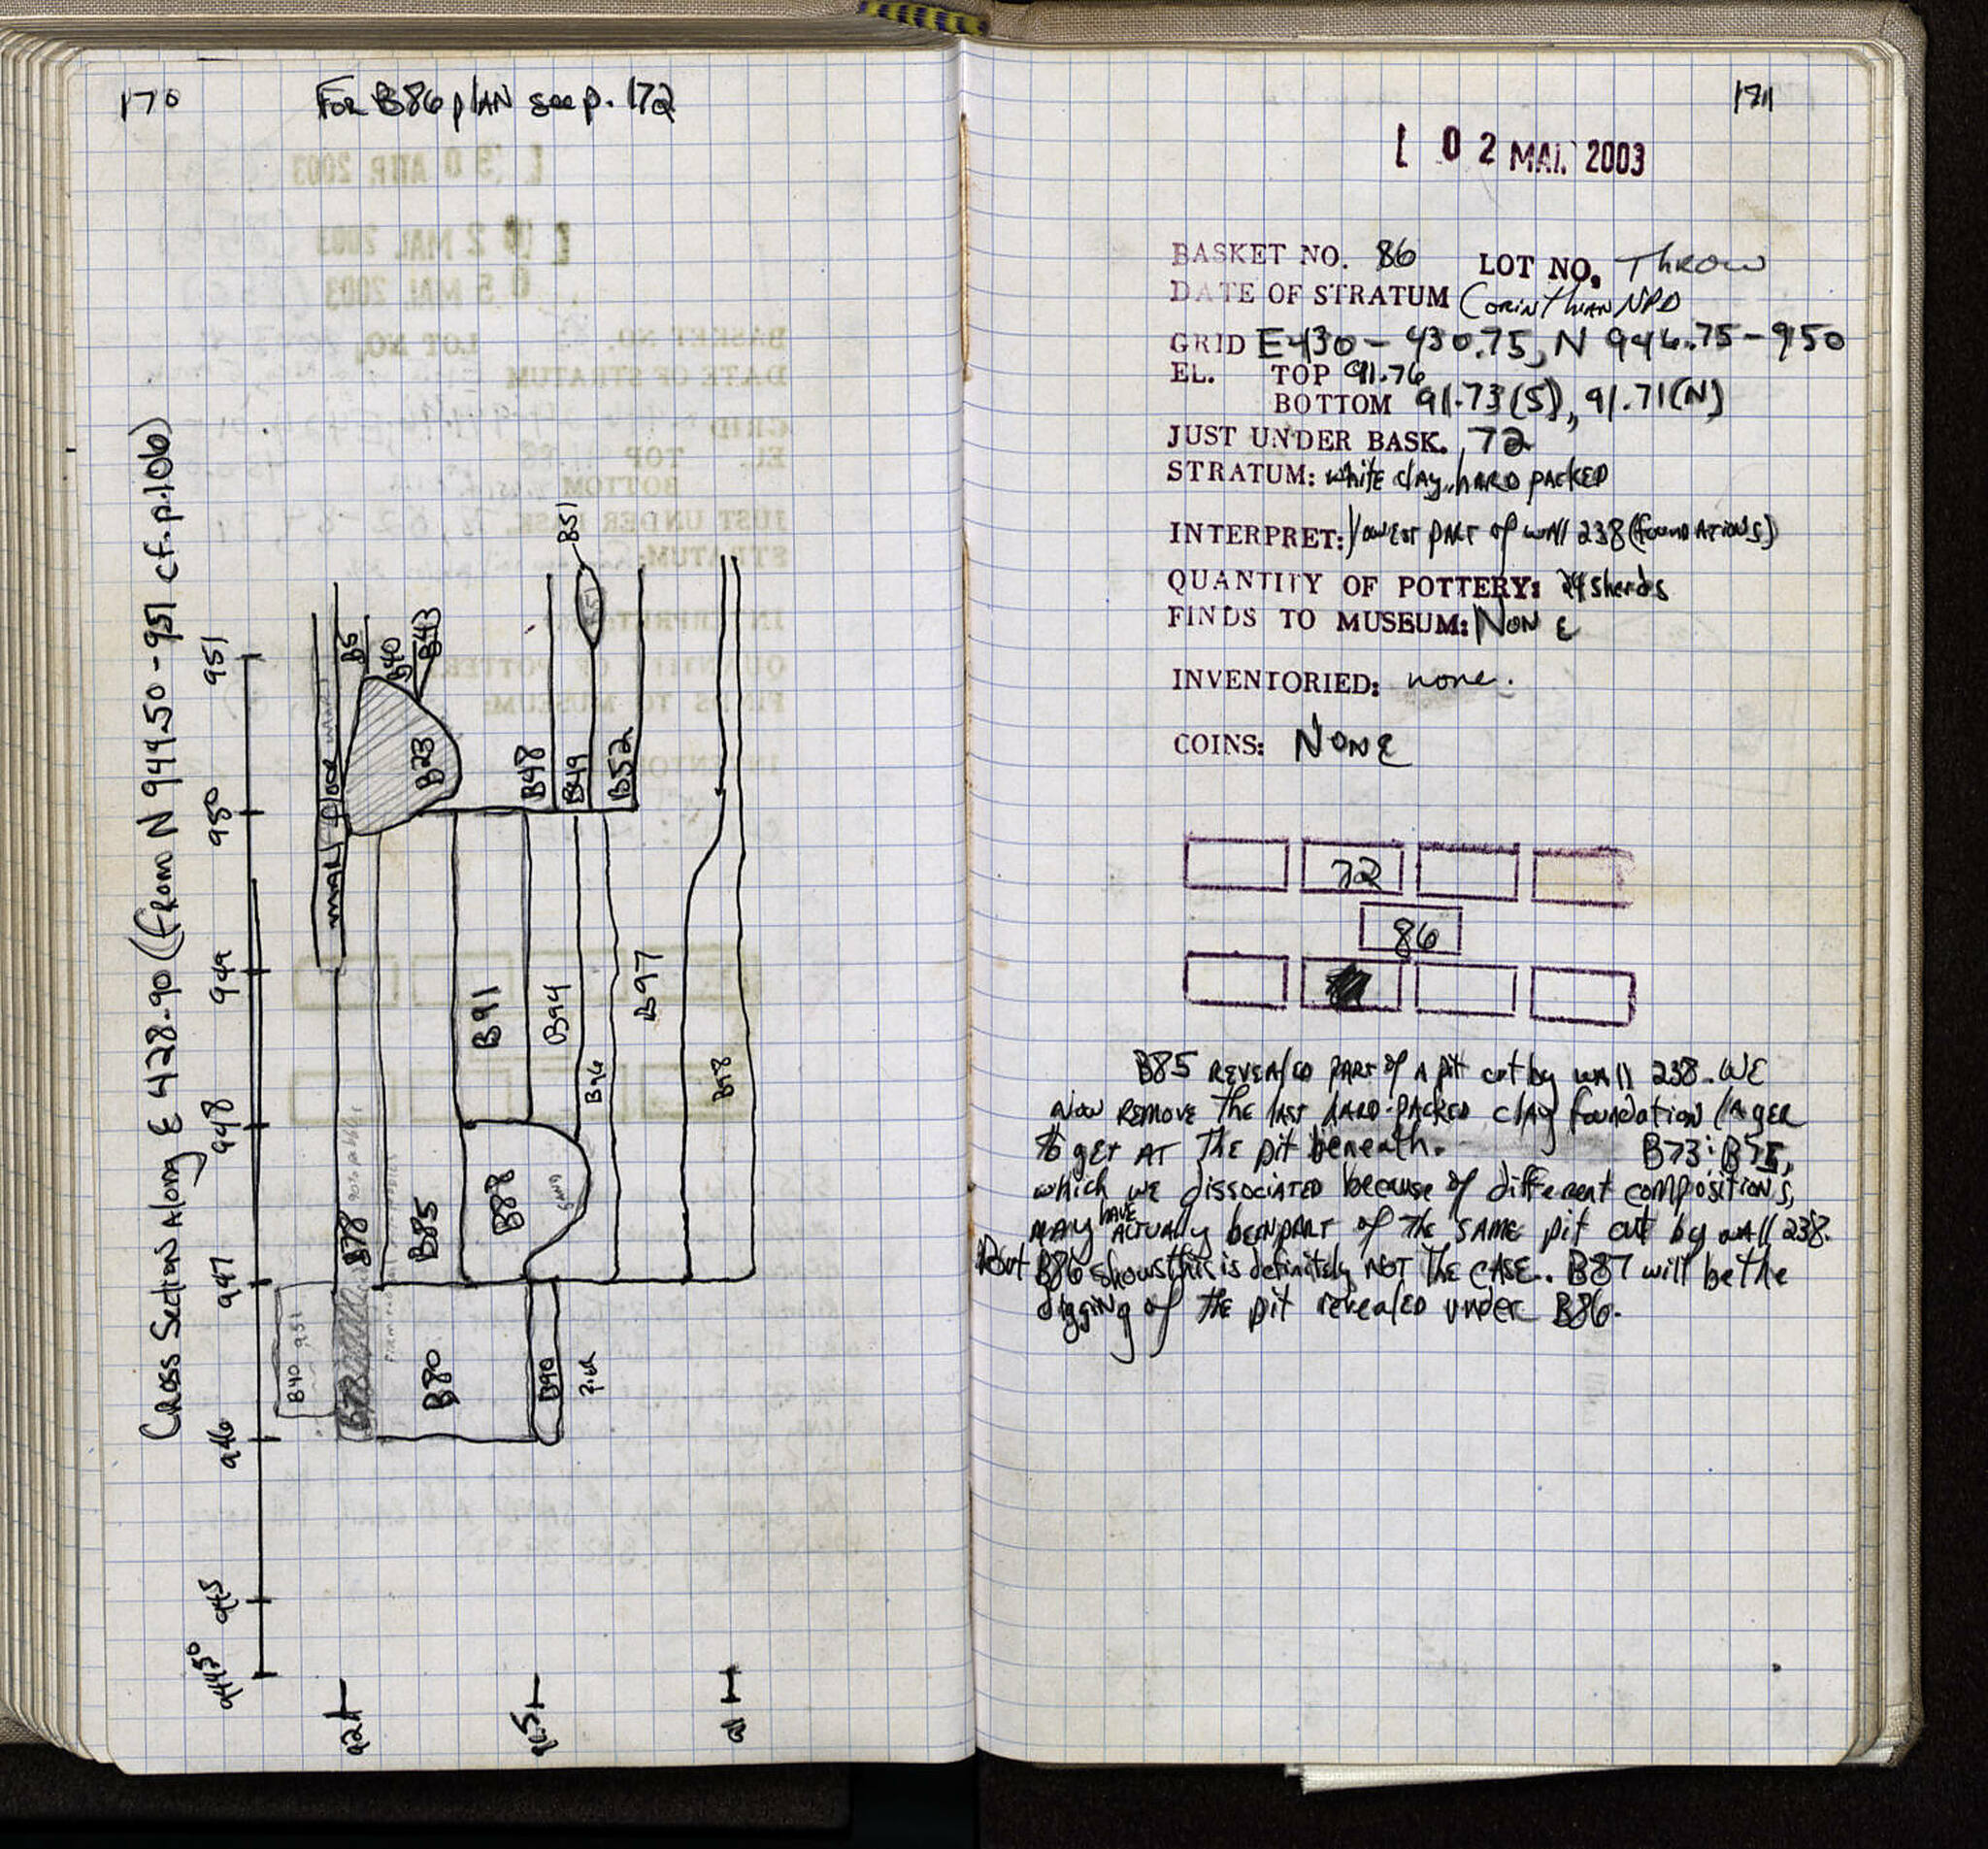 170
For B86 plan see p. 172
Cross Section Along E 428.90 (from N 944.50 - 951 cf. p. 106)
951
950
949
948
947
946
945
944.50
92
91.5
91
B5
B40
B43
B51
marl floor
B23
B48
B49
B52
B91
B94
B96
B97
B98
B78
B85
B88
SAND
B40 951
B73
B80
B90
171
02 MAI. 2003
BASKET NO. 86 LOT NO. Throw
DATE OF STRATUM Corinthian NPD
GRID E 430 - 430.75, N 946.75 - 950
EL. TOP 91.76
BOTTOM 91.73 (S), 91.71 (N)
JUST UNDER BASK. 72
STRATUM: white clay, hard packed
INTERPRET: lowest part of wall 238 (foundations)
QUANTITY OF POTTERY: 24 sherds
FINDS TO MUSEUM: NONE
INVENTORIED: none.
COINS: NONE
72
86
B85 revealed part of a pit cut by wall 238. We
now remove the last hard-packed clay foundation layer
to get at the pit beneath. B73:B75,
which we dissociated because of different compositions,
may have actually been part of the same pit cut by wall 238.
But B86 shows this is definitely NOT the case. B87 will be the
digging of the pit revealed under B86.